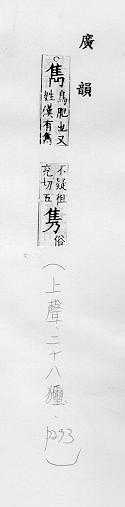 廣韻
雋鳥肥也又姓漢有雋不疑徂兗切五隽俗
(上聲.二十八獮.P293)